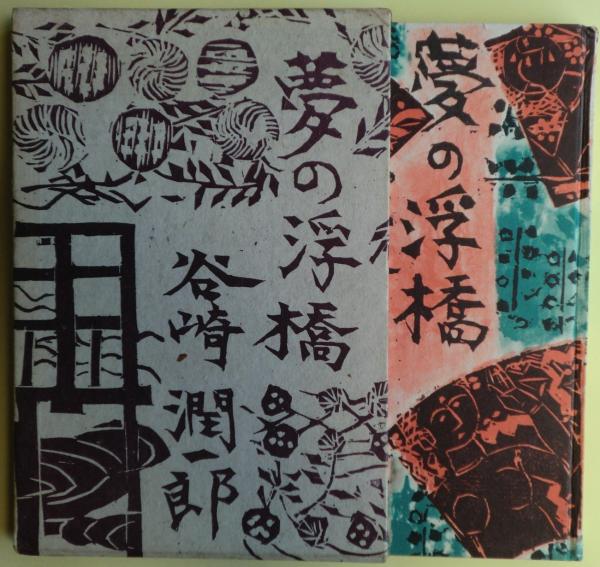 夢の浮橋
谷崎
潤一郎
夢の浮橋